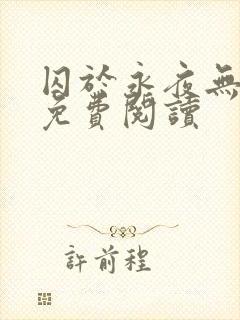 囚於永夜無
免費閱讀
許前程